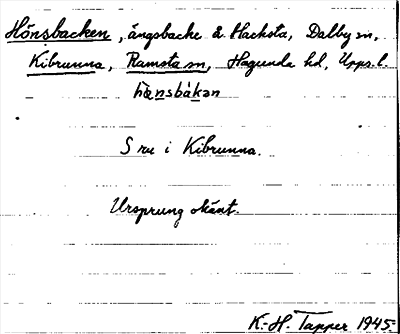 Hönsbacken, ängsbacke å Hacksta, Dalby sn,
Kibrunna, Ramsta sn, Hagunda hd, Upps. l.
hä̀nsbákan
S ru i Kibrunna.
Ursprung okänt.
K.-H. Tapper 1945